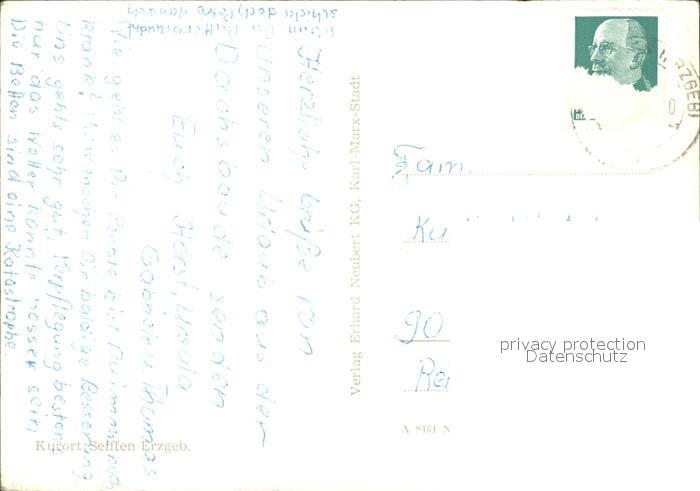 Herzliche Grüße von
unserem Urlaub aus der
Dachsbaude senden
Euch Horst, Ursula
Gabriele u. Thomas
Wie geht es Dir Renate bist Du immer noch
krank? Wir wünschen Dir baldige Besserung.
Uns gehts sehr gut, Verpflegung bestens,
nur das Wetter könnte besser sein.
Die Betten sind eine Katastrophe.
schickt doch Petra danach
Verlag Erhard Neubert KG, Karl-Marx-Stadt
Fam.
Ku
90
Rei
privacy protection
Datenschutz
A 9461 N
Kurort Seiffen Erzgeb.
RZGEB